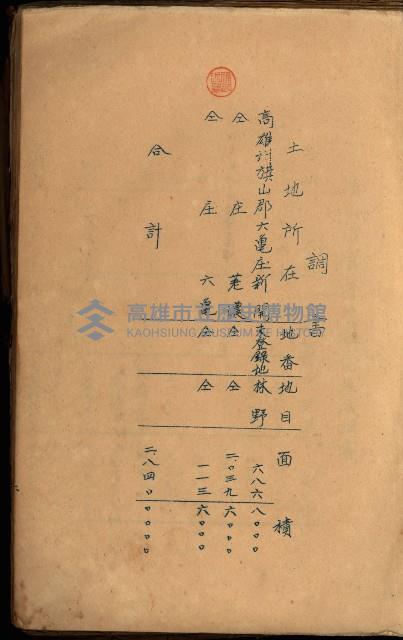 調書
土地所在 地番 地目 面積
高雄州旗山郡六亀庄新開 未登録地 林野 六八六八〇〇〇
仝 庄 荖濃 仝 仝 二、〇三九六〇〇〇
仝 庄 六亀 仝 仝 一一三六〇〇〇
合計 二、八四〇〇〇〇〇
高雄市立歷史博物館
KAOHSIUNG MUSEUM OF HISTORY